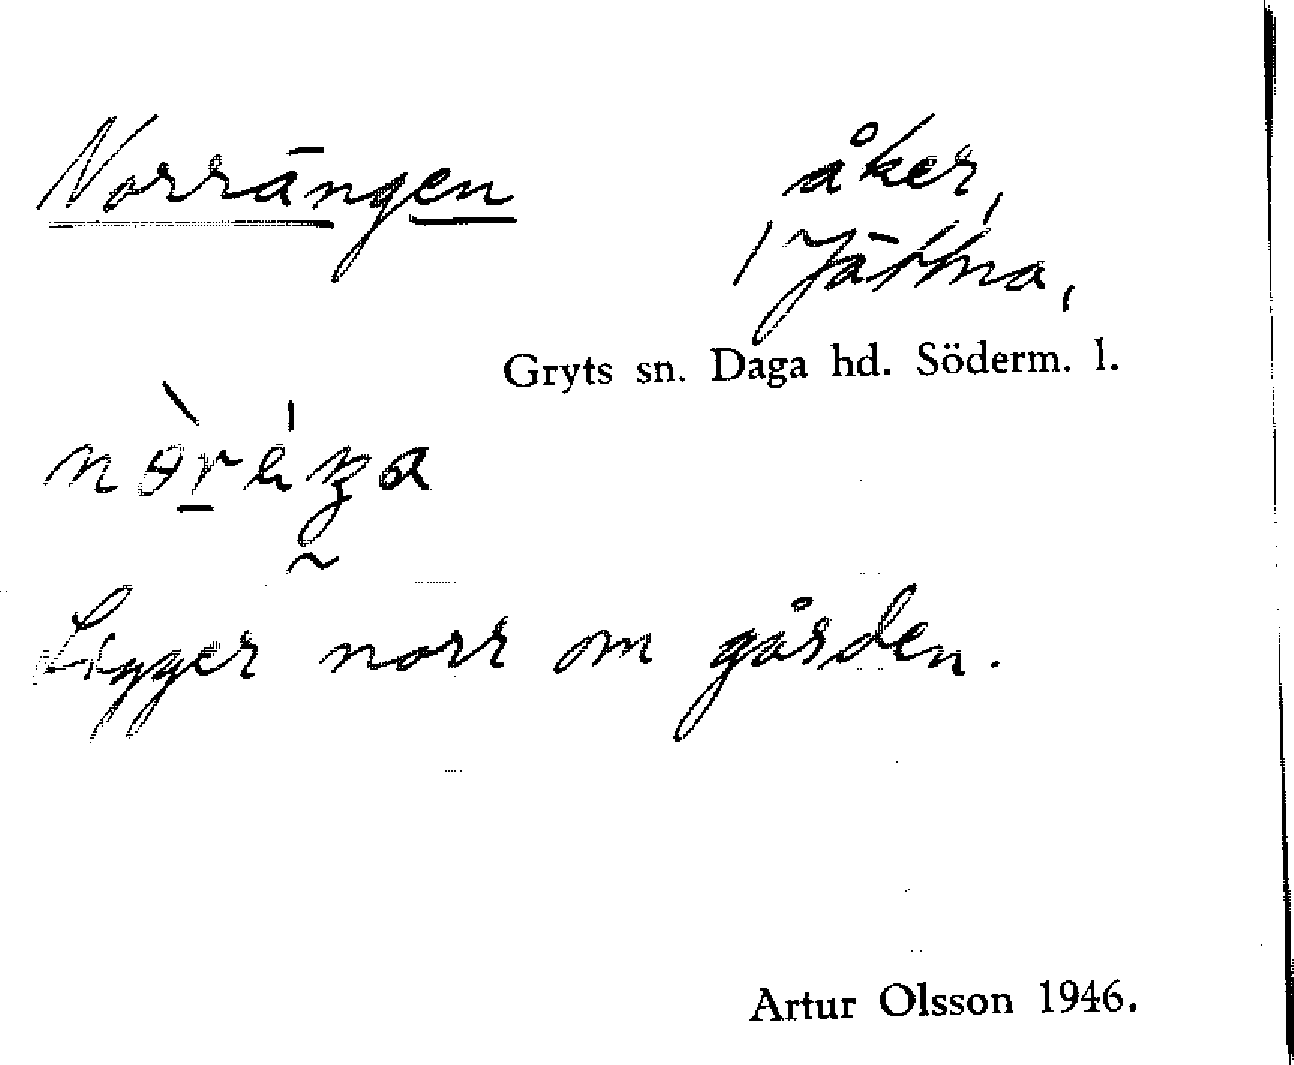 Norrängen åker,
1 Jätna,
Gryts sn. Daga hd. Söderm. l.
Ligger norr om gården.
Artur Olsson 1946.